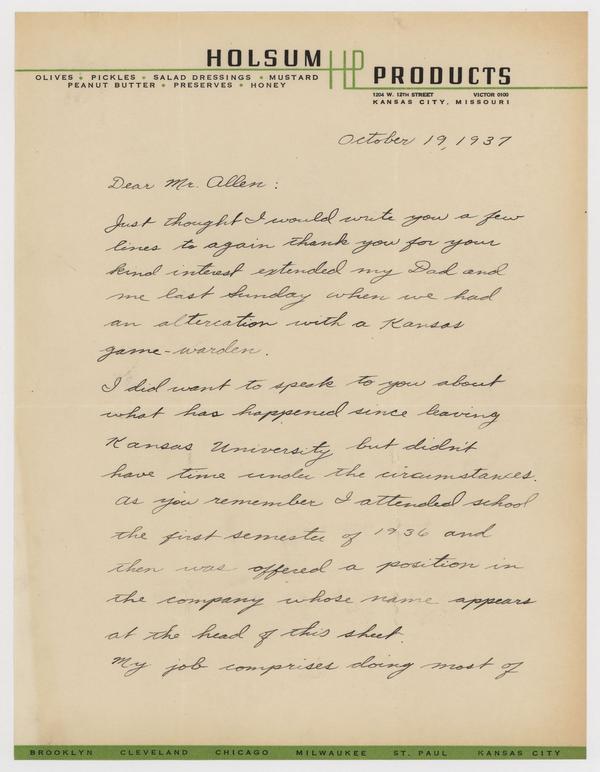 HOLSUM HP PRODUCTS
OLIVES • PICKLES • SALAD DRESSINGS • MUSTARD
PEANUT BUTTER • PRESERVES • HONEY
1204 W. 12TH STREET VICTOR 0100
KANSAS CITY, MISSOURI
October 19, 1937
Dear Mr. Allen:
Just thought I would write you a few
lines to again thank you for your
kind interest extended my Dad and
me last Sunday when we had
an altercation with a Kansas
game-warden.
I did want to speak to you about
what has happened since leaving
Kansas University but didn't
have time under the circumstances.
As you remember I attended school
the first semester of 1936 and
then was offered a position in
the company whose name appears
at the head of this sheet.
My job comprises doing most of
BROOKLYN CLEVELAND CHICAGO MILWAUKEE ST. PAUL KANSAS CITY